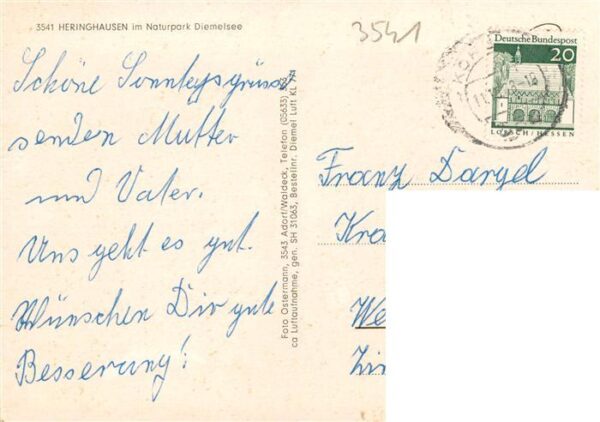 3541 HERINGHAUSEN im Naturpark Diemelsee
3541
Deutsche Bundespost
20
LORSCH/HESSEN
Schöne Sonntagsgrüsse
senden Mutter
und Vater.
Uns geht es gut.
Wünschen Dir gute
Besserung!
Foto Ostermann, 3543 Adorf/Waldeck, Telefon (05633)
ca Luftaufnahme, gen. SH 31063, Bestellnr. Diemel Luft KL 771
Franz Dargel
Kra
We
Zim